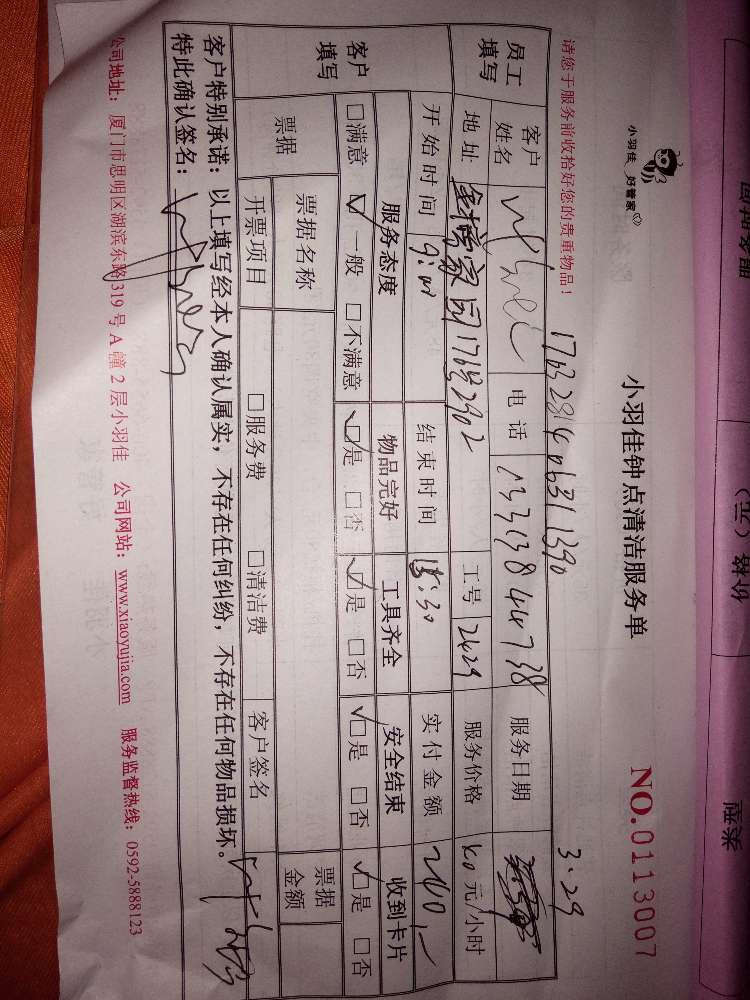 小羽佳 好管家
小羽佳钟点清洁服务单
NO.0113007
请您于服务前收拾好您的贵重物品！
3.29
员工填写
客户姓名 电话 13313844738 服务日期
地址 1702902 工号 2429 服务价格 元/小时
开始时间 结束时间 实付金额 240.-
客户填写
服务态度 物品完好 工具齐全 安全结束 收到卡片
□满意 ☑一般 □不满意 ☑是 □否 ☑是 □否 ☑是 □否 ☑是 □否
票据 票据名称 票据金额
开票项目 □服务费 □清洁费 客户签名
客户特别承诺：以上填写经本人确认属实，不存在任何纠纷，不存在任何物品损坏。
特此确认签名：
公司地址：厦门市思明区湖滨东路319号A幢2层小羽佳 公司网站：www.xiaoyujia.com 服务监督热线：0592-5888123